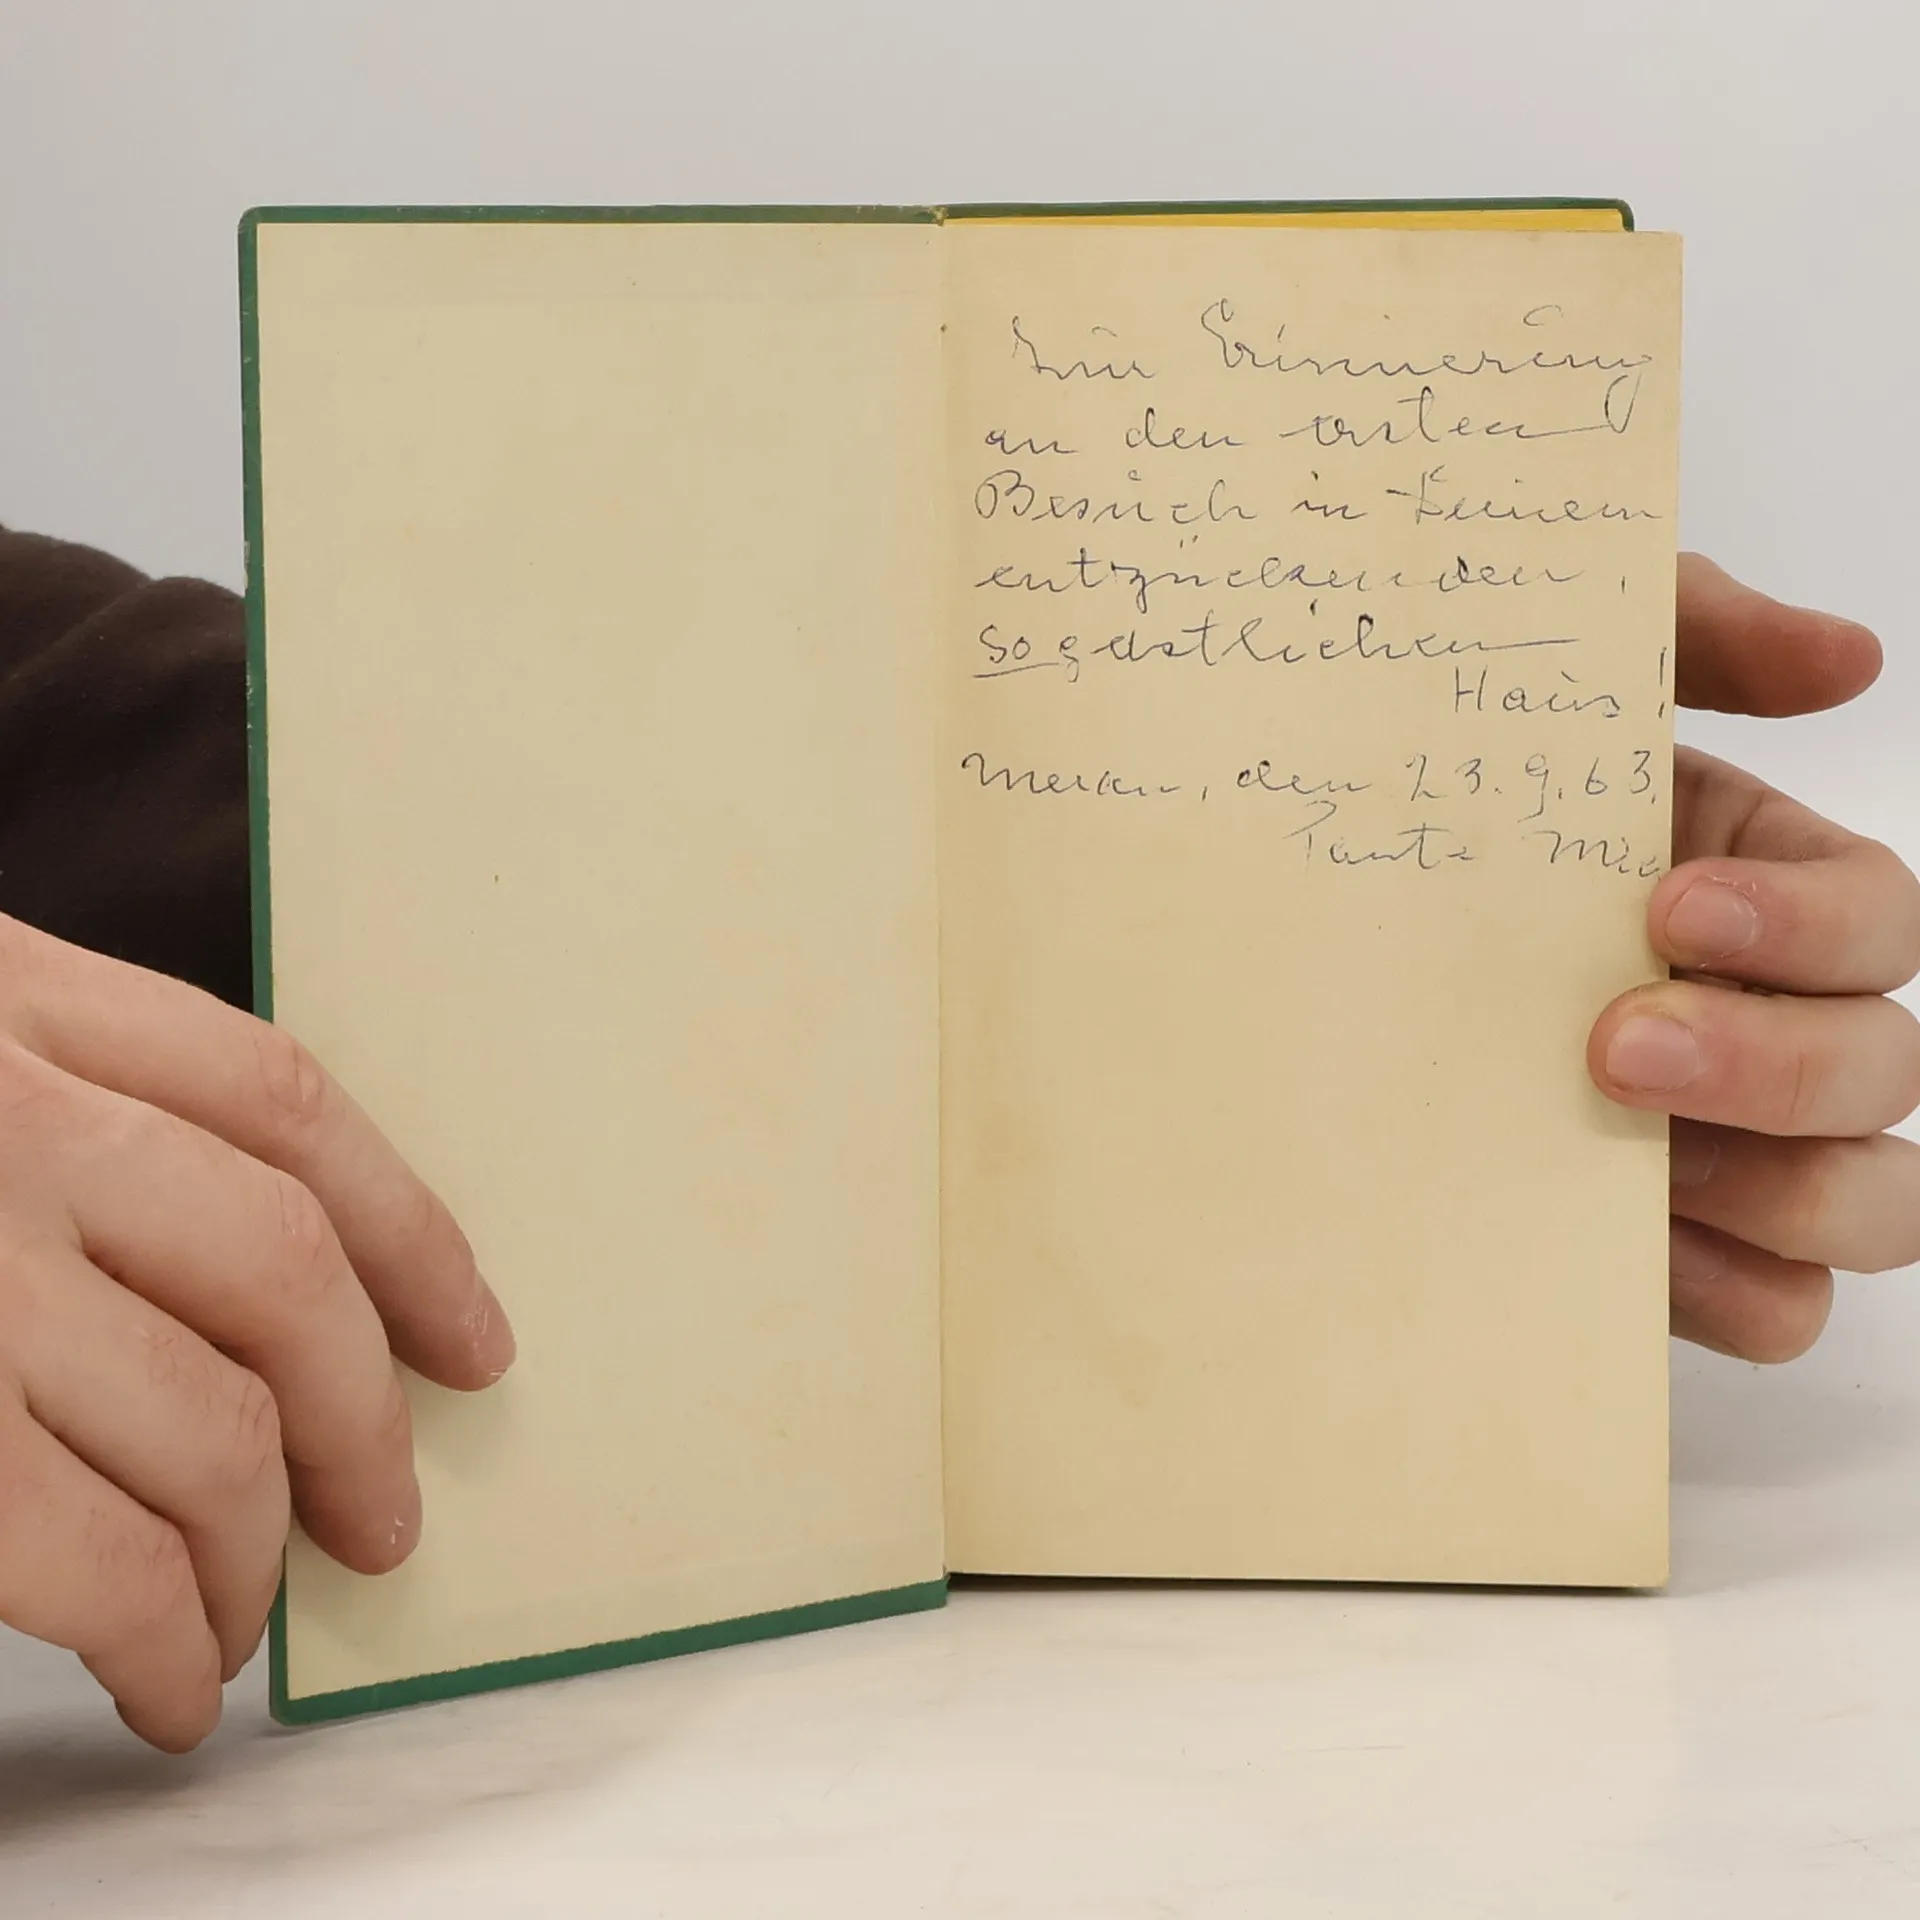 Zur Erinnerung
an den ersten
Besuch in Deinem
entzückenden,
so gastlichen
Haus!
Meran, den 23.9.63.
Tante Mia